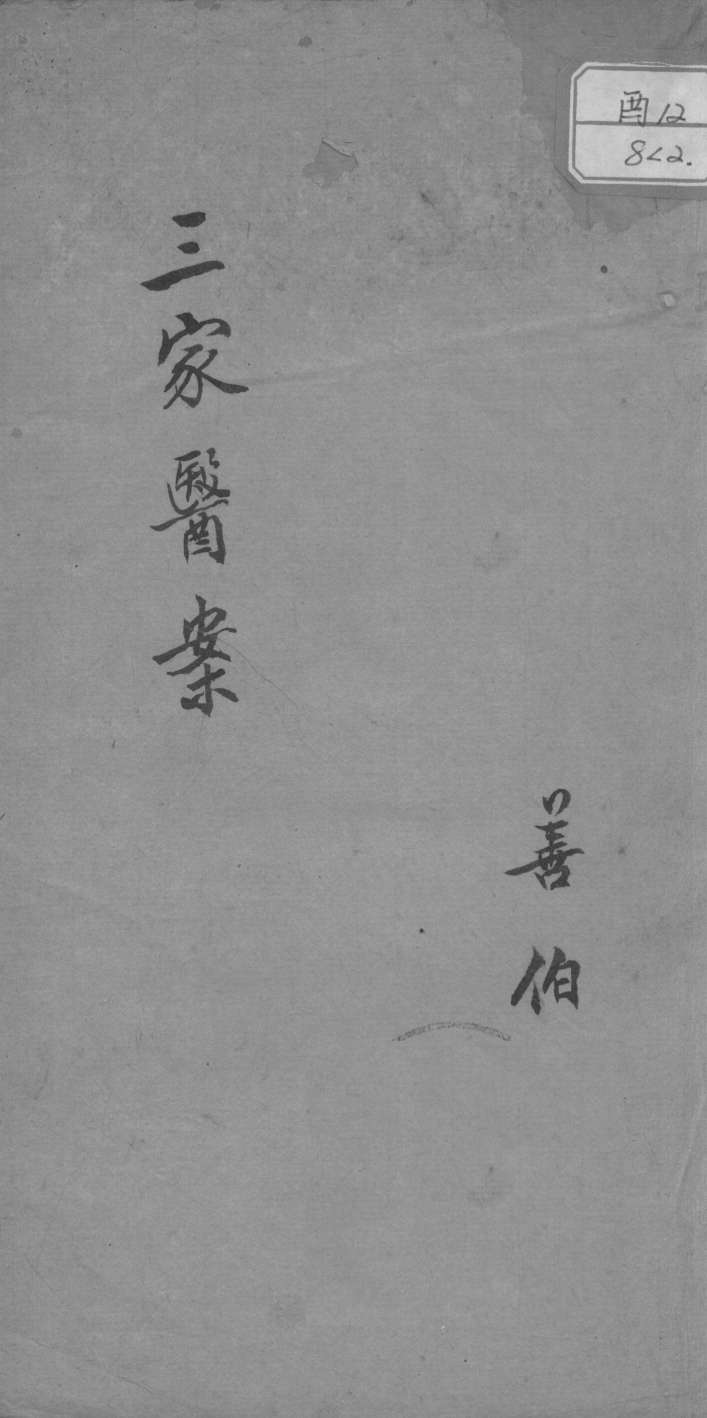 酉12
822.
三家醫案
善伯